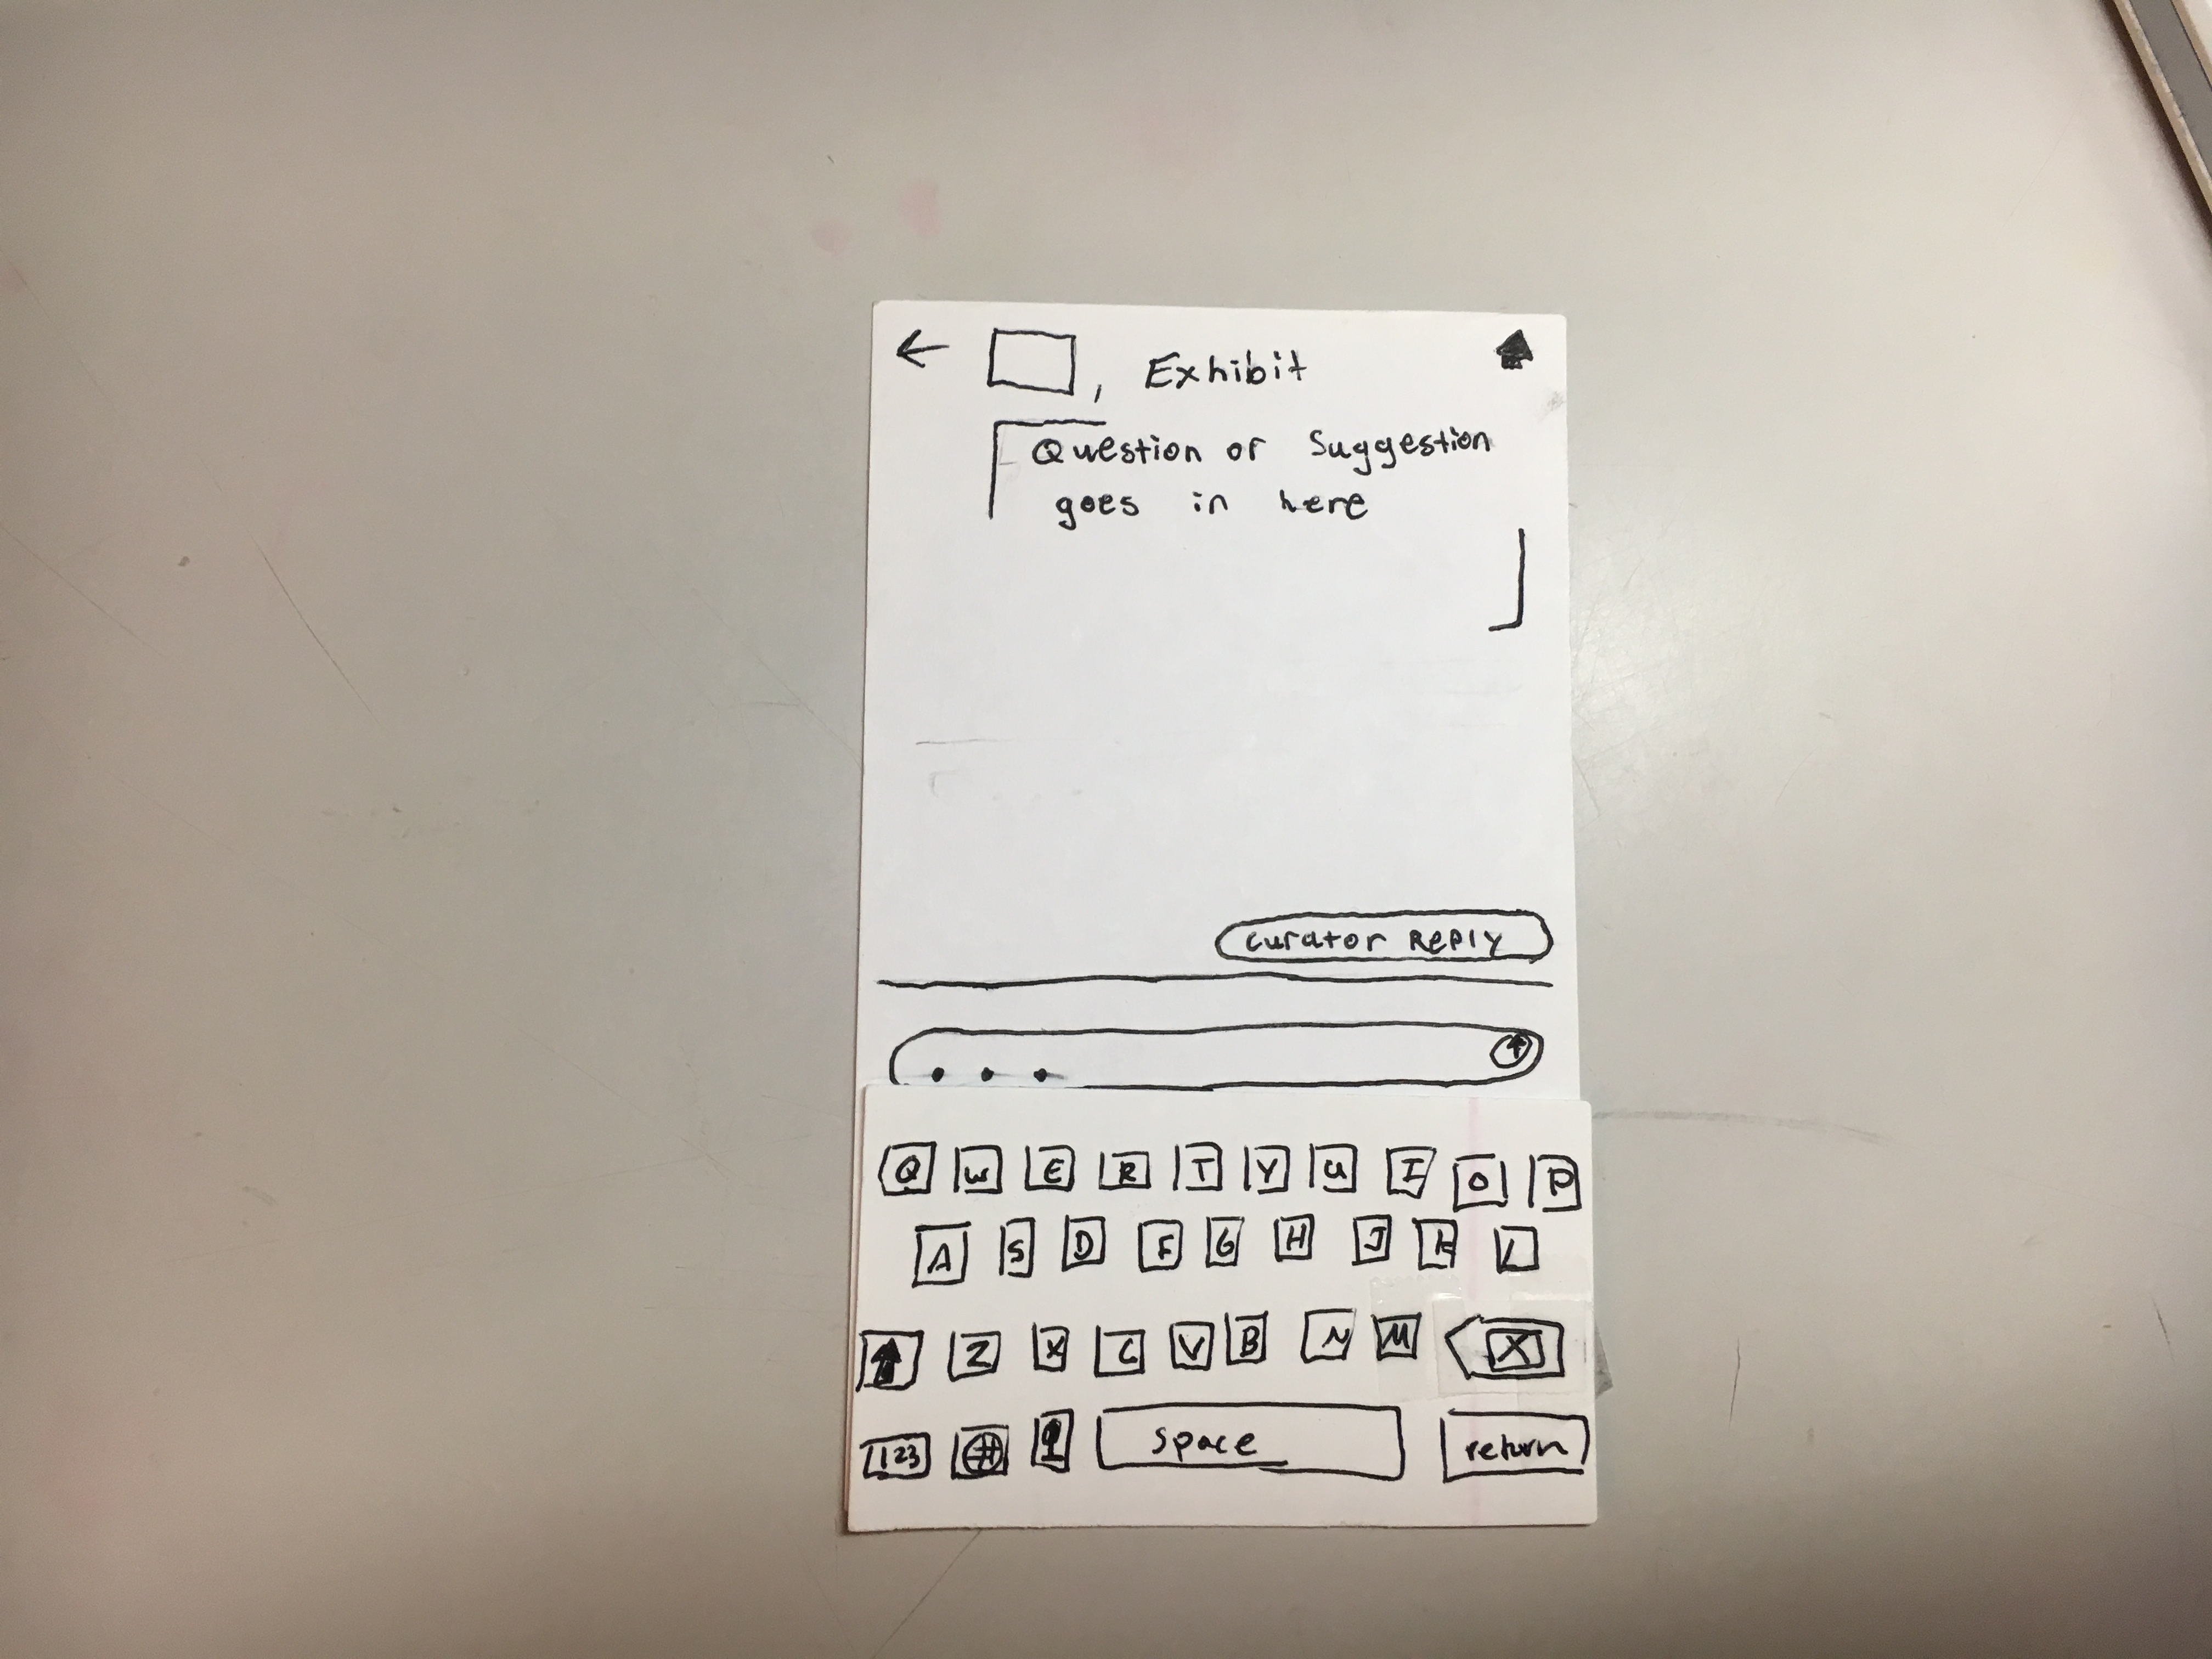 Exhibit
Question or Suggestion
goes in here
Curator Reply
Q W E R T Y U I O P
A S D F G H J K L
Z X C V B N M X
123 space return